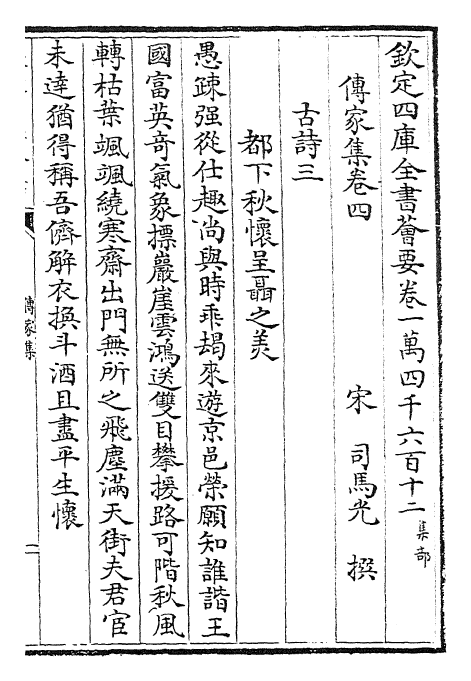 欽定四庫全書薈要卷一萬四千六百十二 集部
傳家集卷四 宋 司馬光 撰
古詩三
都下秋懷呈聶之美
愚踈强從仕趣尚與時乖朅來遊京邑榮願知誰諧王
國富英竒氣象摽巖崖雲鴻送雙目攀援路可階秋風
轉枯葉颯颯繞寒齋出門無所之飛塵滿天街夫君官
未達猶得稱吾儕解衣換斗酒且盡平生懷
傳家集